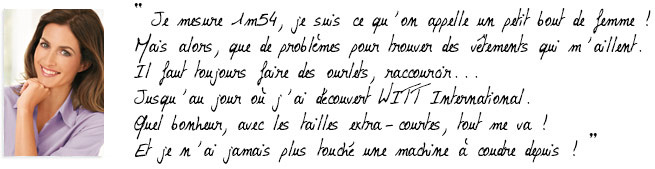 " Je mesure 1m54, je suis ce qu'on appelle un petit bout de femme !
Mais alors, que de problèmes pour trouver des vêtements qui m'aillent.
Il faut toujours faire des ourlets, raccourcir...
Jusqu'au jour où j'ai découvert WITT International.
Quel bonheur, avec les tailles extra-courtes, tout me va !
Et je n'ai jamais plus touché une machine à coudre depuis ! "